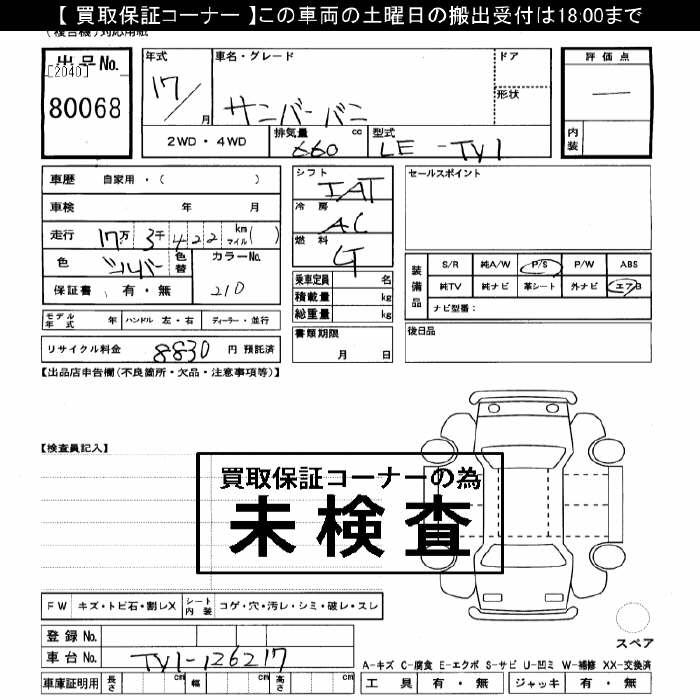 【 買取保証コーナー 】この車両の土曜日の搬出受付は18:00まで
(複合機)対応用紙
出品No.
[2040]
80068
年式
17/
月
車名・グレード
サンバーバン
ドア
形状
評価点
—
内装
2WD・4WD
排気量 660 cc
型式 LE-TV1
車歴 自家用・( )
車検 年 月
走行 17万 3千 4 2 2 km マイル( )
色 シルバー 色替
カラーNo.
210
保証書 有・無
モデル年式 年 ハンドル 左・右 ディーラー・並行
リサイクル料金 8830 円 預託済
シフト
IAT
冷房
AC
燃料
G
乗車定員 名
積載量 kg
総重量 kg
書類期限
月 日
セールスポイント
装備品
S/R 純A/W P/S P/W ABS
純TV 純ナビ 革シート 外ナビ エアB
ナビ型番:
後日品
【出品店申告欄(不良箇所・欠品・注意事項等)】
【検査員記入】
買取保証コーナーの為
未検査
FW キズ・トビ石・割レX シート内装 コゲ・穴・汚レ・シミ・破レ・スレ
登録No.
車台No. TV1-126217
車庫証明用 長さ cm 幅 cm 高さ cm
スペア
A-キズ C-腐食 E-エクボ S-サビ U-凹ミ W-補修 XX-交換済
工具 有・無 ジャッキ 有・無